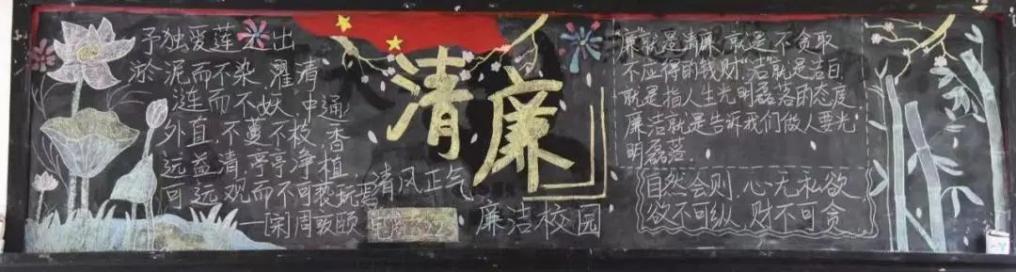 予独爱莲之出
淤泥而不染,濯清
涟而不妖,中通
外直,不蔓不枝,香
远益清,亭亭净植
可远观而不可亵玩焉
—周敦颐
清廉
清风正气
廉洁校园
廉就是清廉,就是不贪取
不应得的钱财"洁"就是洁白
就是指人生光明磊落的态度
廉洁就是告诉我们做人要光
明磊落.
自然会则,心无私欲
欲不可纵,财不可贪